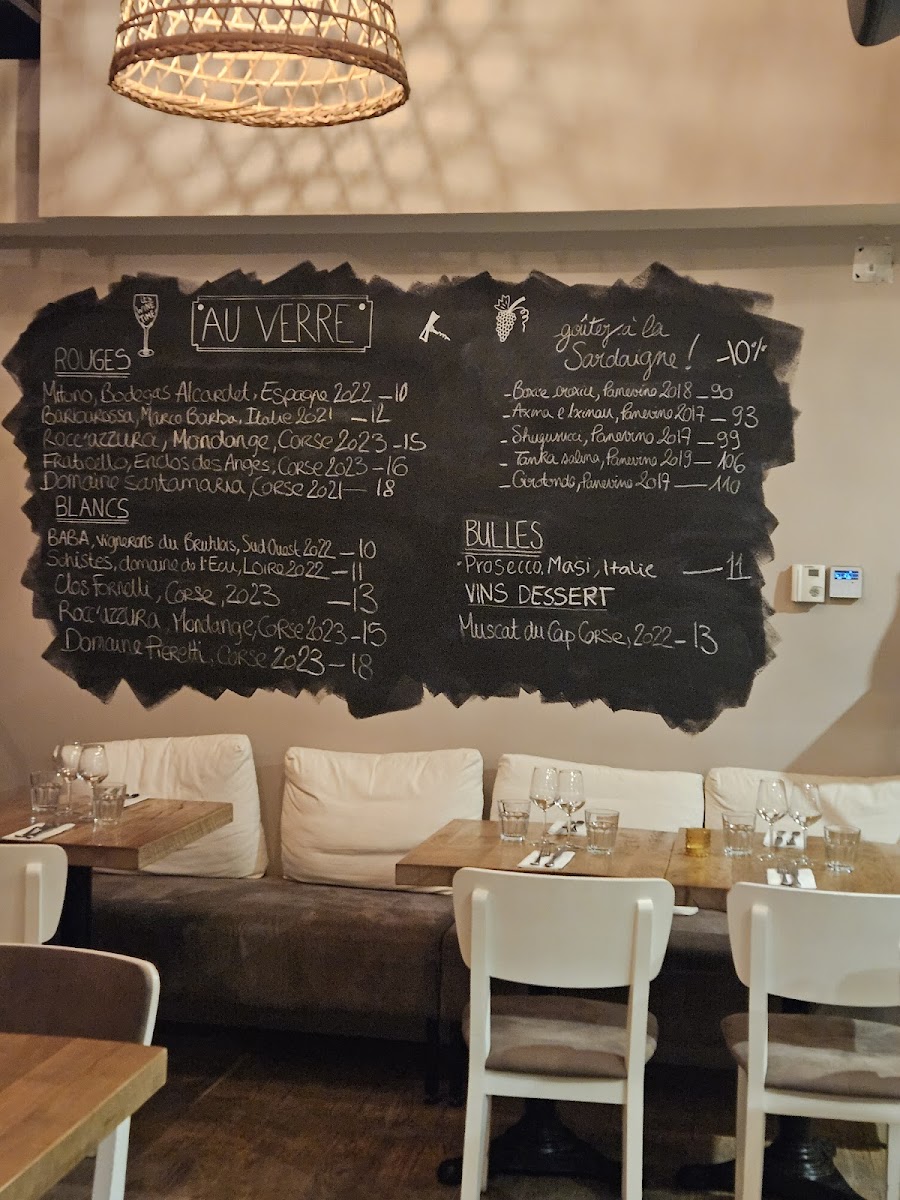 LES
WINE
TIME
AU VERRE
ROUGES
Mitono, Bodegas Alcardet, Espagne 2022 - 10
Barbarossa, Marco Barba, Italie 2021 - 12
Rocc'azzura, Mondange, Corse 2023 - 15
Fraticello, Enclos des Anges, Corse 2023 - 16
Domaine Santamaria, Corse 2021 - 18
BLANCS
BABA, vignerons du Brulhois, Sud Ouest 2022 - 10
Schistes, domaine de l'Ecu, Loire 2022 - 11
Clos Fornelli, Corse, 2023 - 13
Rocc'azzura, Mondange, Corse 2023 - 15
Domaine Pieretti, Corse 2023 - 18
goûtez à la
Sardaigne ! -10%
- Panevino 2018 - 90
- Panevino 2017 - 93
- Panevino 2017 - 99
- Tanka salina, Panevino 2019 - 106
- Girotondo, Panevino 2017 - 110
BULLES
Prosecco, Masi, Italie - 11
VINS DESSERT
Muscat du Cap Corse, 2022 - 13